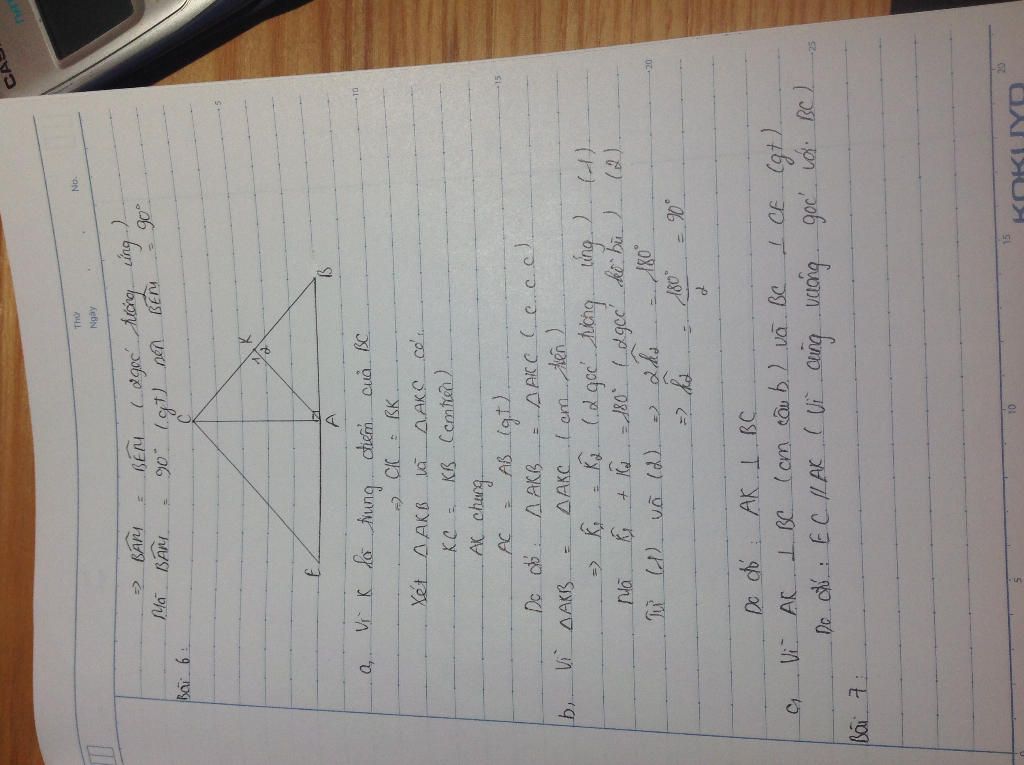 Thứ
Ngày
No.
=> BÂM = BÊM (2góc tương ứng)
Mà BÂM = 90° (gt) nên BÊM = 90°
Bài 6:
C
K
1
2
E
A
B
a, Vì K là trung điểm của BC
=> CK = BK
Xét △AKB và △AKC có:
KC = KB (cmtrên)
AK chung
AC = AB (gt)
Do đó: △AKB = △AKC (c.c.c)
b, Vì △AKB = △AKC (cm trên)
=> K̂1 = K̂2 (2 góc tương ứng) (1)
Mà K̂1 + K̂2 = 180° (2góc kề bù) (2)
Từ (1) và (2) => 2k̂2 = 180°
=> k̂2 = 180°/2 = 90°
Do đó: AK ⊥ BC
c, Vì AK ⊥ BC (cm câu b) và BC ⊥ CE (gt)
Do đó: EC // AK (Vì cùng vuông góc với BC)
Bài 7:
5
10
15
20
25
0
5
10
15
20
KOKUYO
CAS